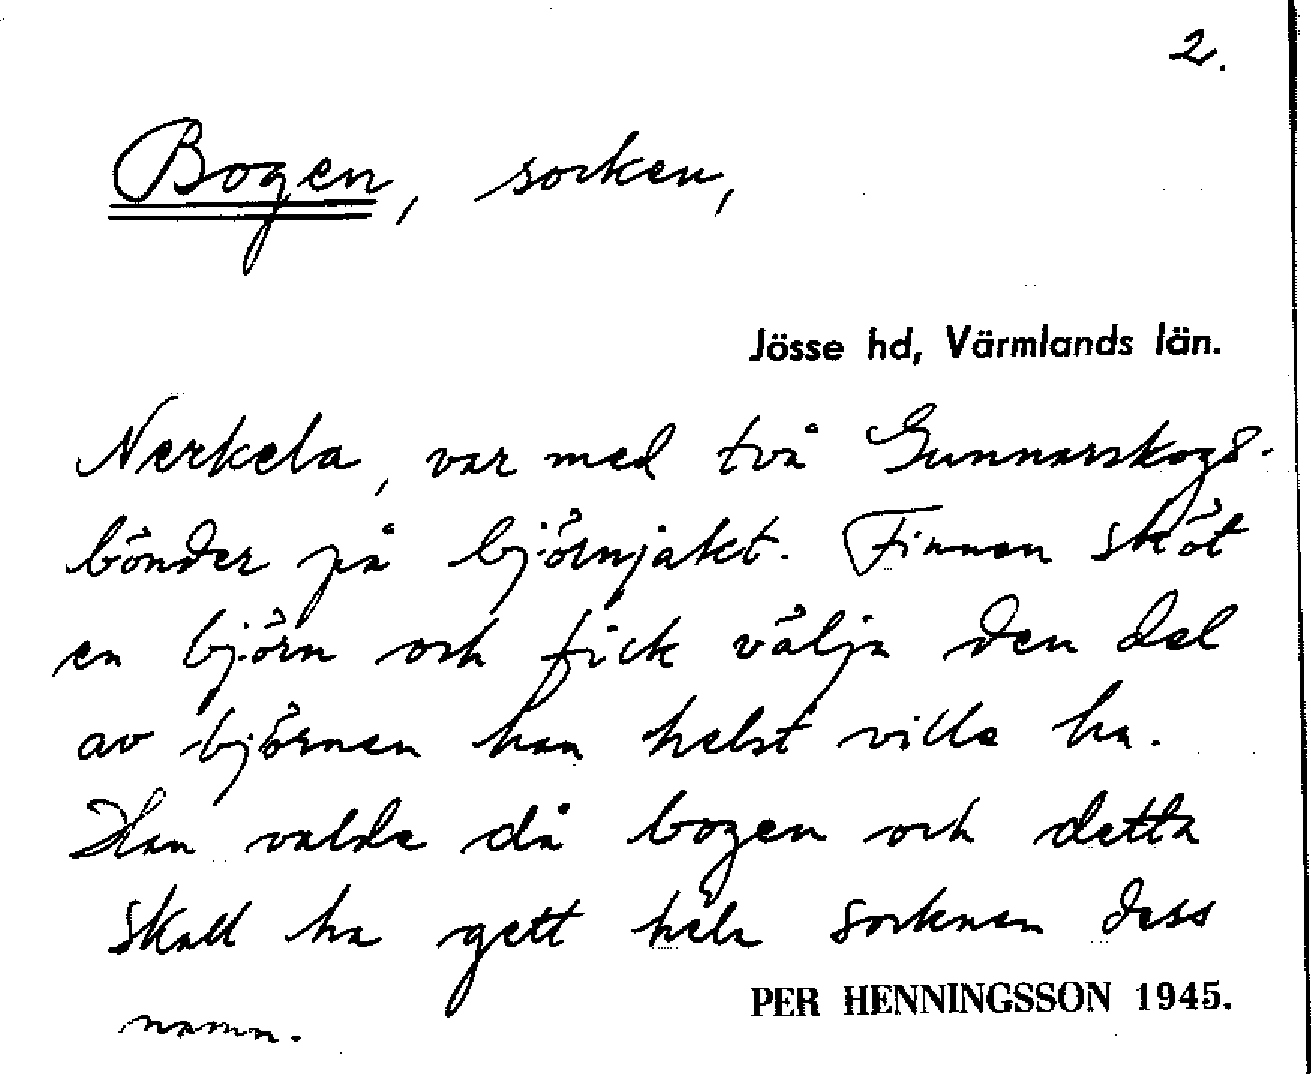 2.
Bogen, socken,
Jösse hd, Värmlands län.
Nerkela, var med två Gunnarskogs-
bönder på björnjakt. Finnen sköt
en björn och fick välja den del
av björnen han helst ville ha.
Han valde då bogen och detta
skall ha gett hela socknen dess
namn.
PER HENNINGSSON 1945.